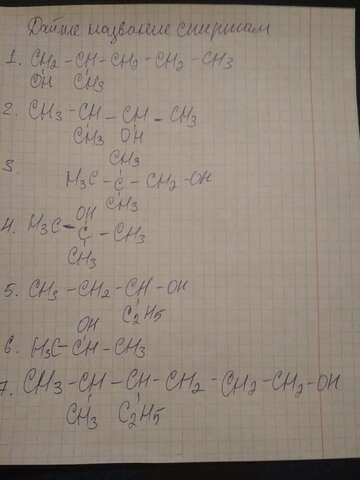 Дайте название спиртам
1. CH2 - CH - CH2 - CH2 - CH3
OH CH3
2. CH3 - CH - CH - CH3
CH3 OH
CH3
3. H3C - C - CH2 - OH
CH3
OH
4. H3C - C - CH3
CH3
5. CH3 - CH2 - CH - OH
C2H5
OH
6. H3C - CH - CH3
7. CH3 - CH - CH - CH2 - CH2 - CH2 - OH
CH3 C2H5